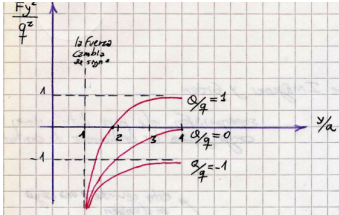 Fy²
q²
la fuerza
cambia
de signo
1
Q/q = 1
1 2 3 4
Q/q = 0
y/a
-1
Q/q = -1